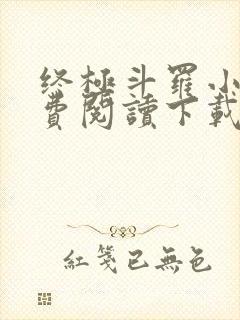 终極斗羅小
費閱讀下載
紅箋已無色